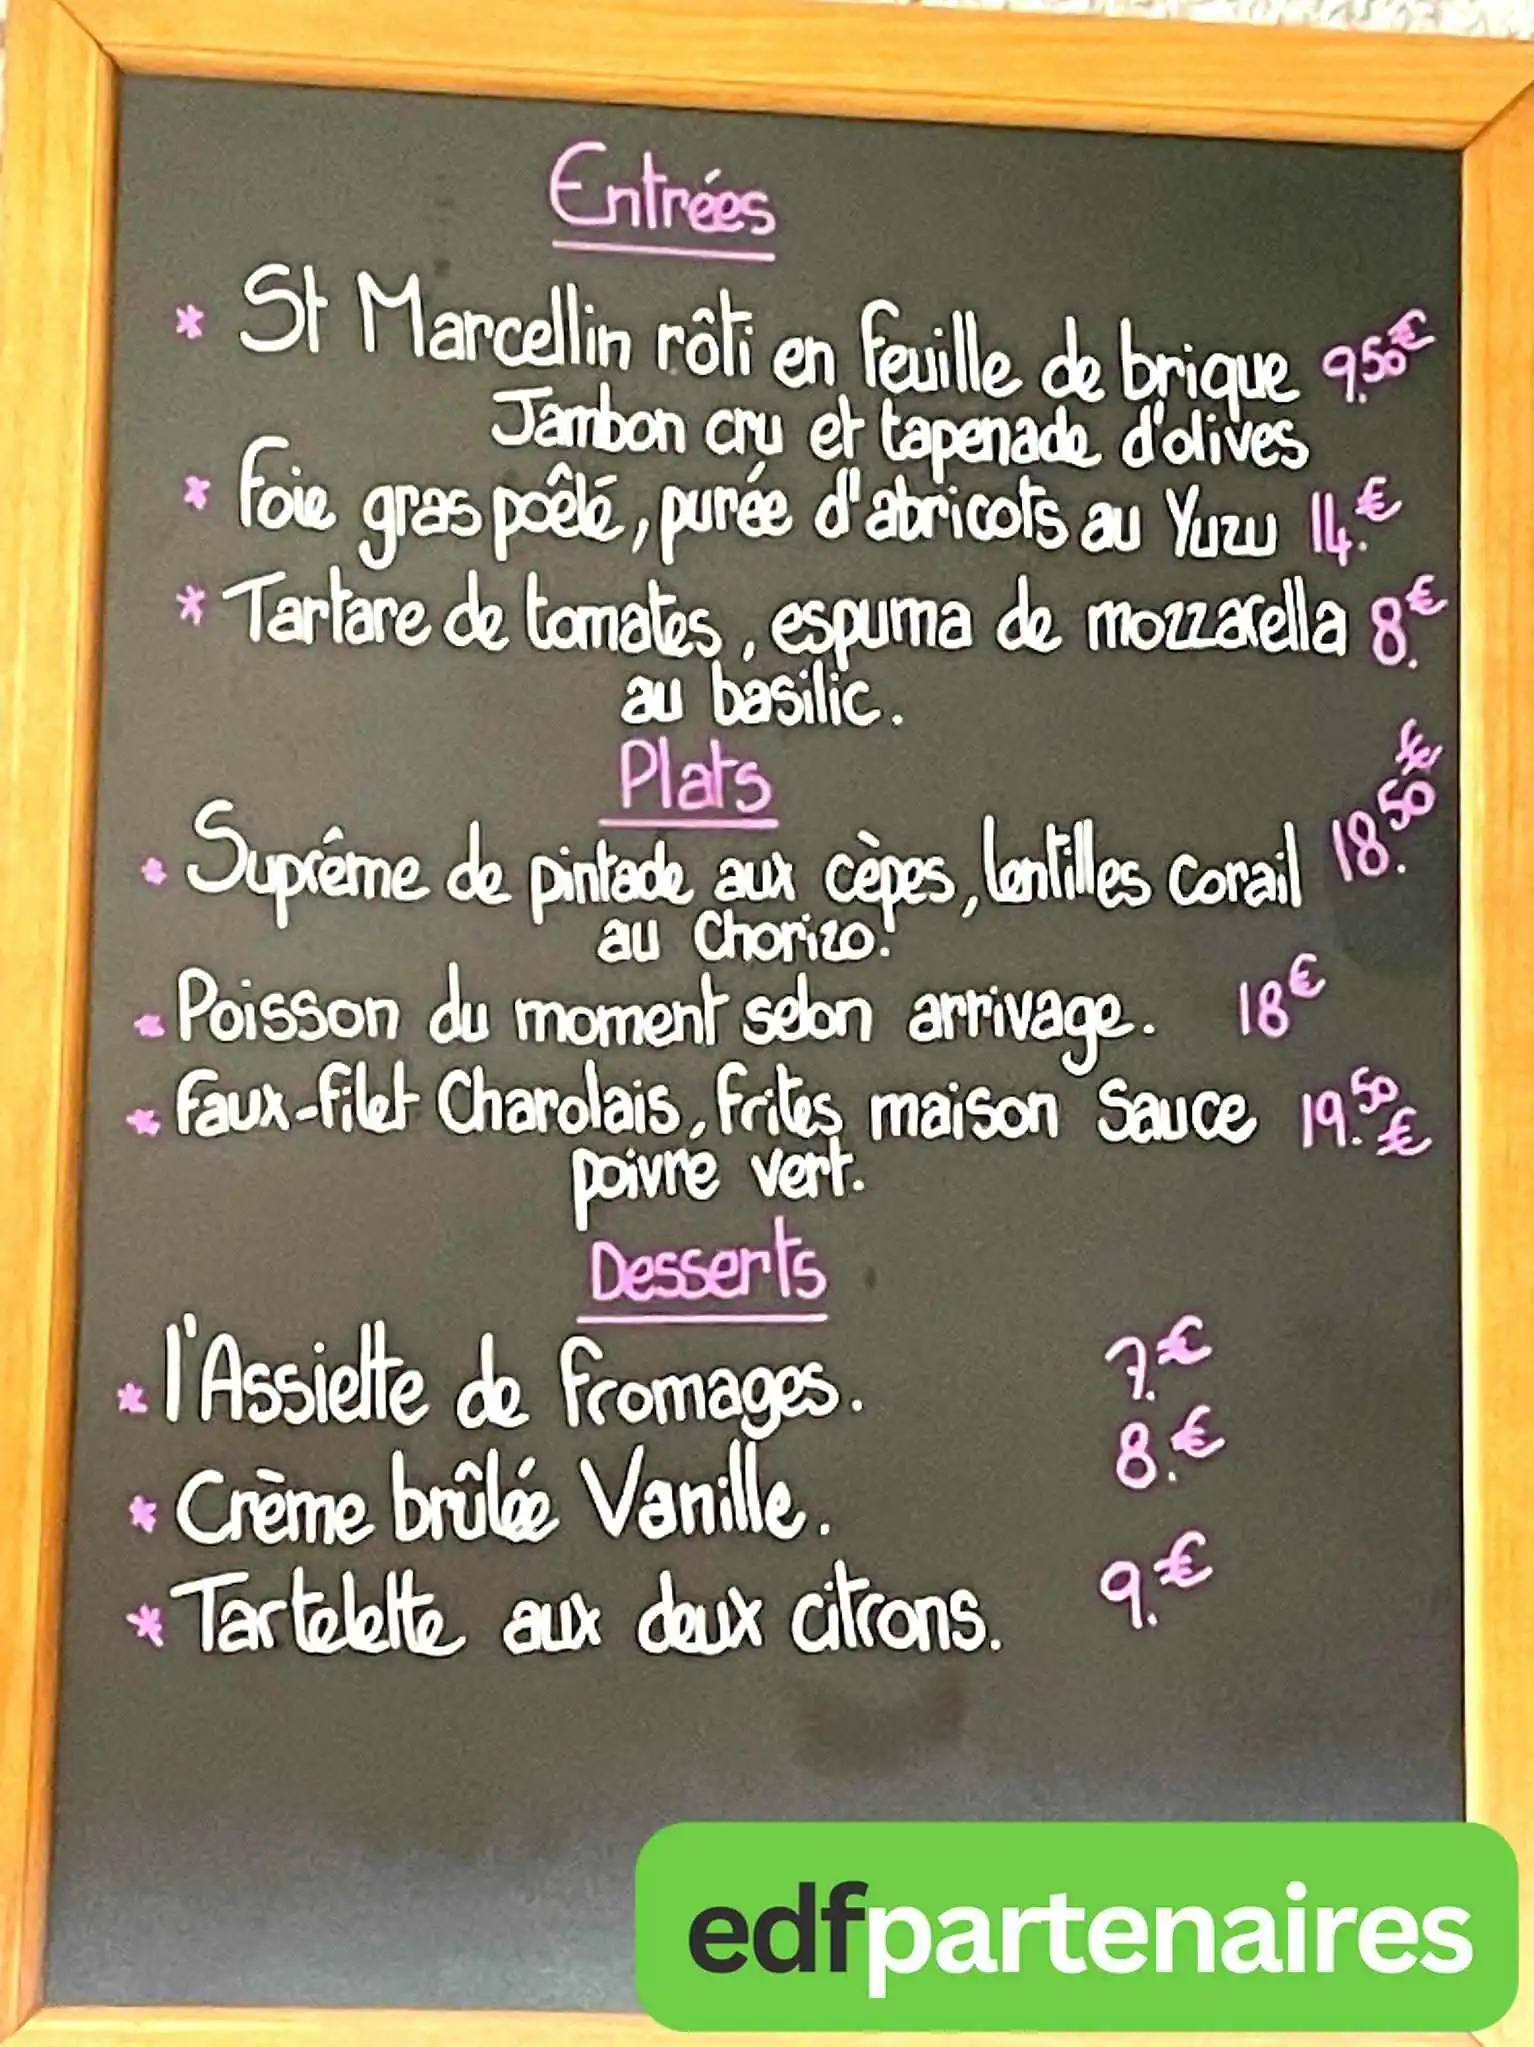 Entrées
* St Marcellin rôti en feuille de brique 9.50€
Jambon cru et tapenade d'olives
* Foie gras poêlé, purée d'abricots au Yuzu 14.€
* Tartare de tomates, espuma de mozzarella 8.€
au basilic.
Plats
* Suprême de pintade aux cèpes, lentilles corail 18.50€
au Chorizo.
* Poisson du moment selon arrivage. 18€
* Faux-filet Charolais, frites maison Sauce 19.50€
poivre vert.
Desserts
* l'Assiette de fromages. 7.€
* Crème brûlée Vanille. 8.€
* Tartelette aux deux citrons. 9.€
edfpartenaires